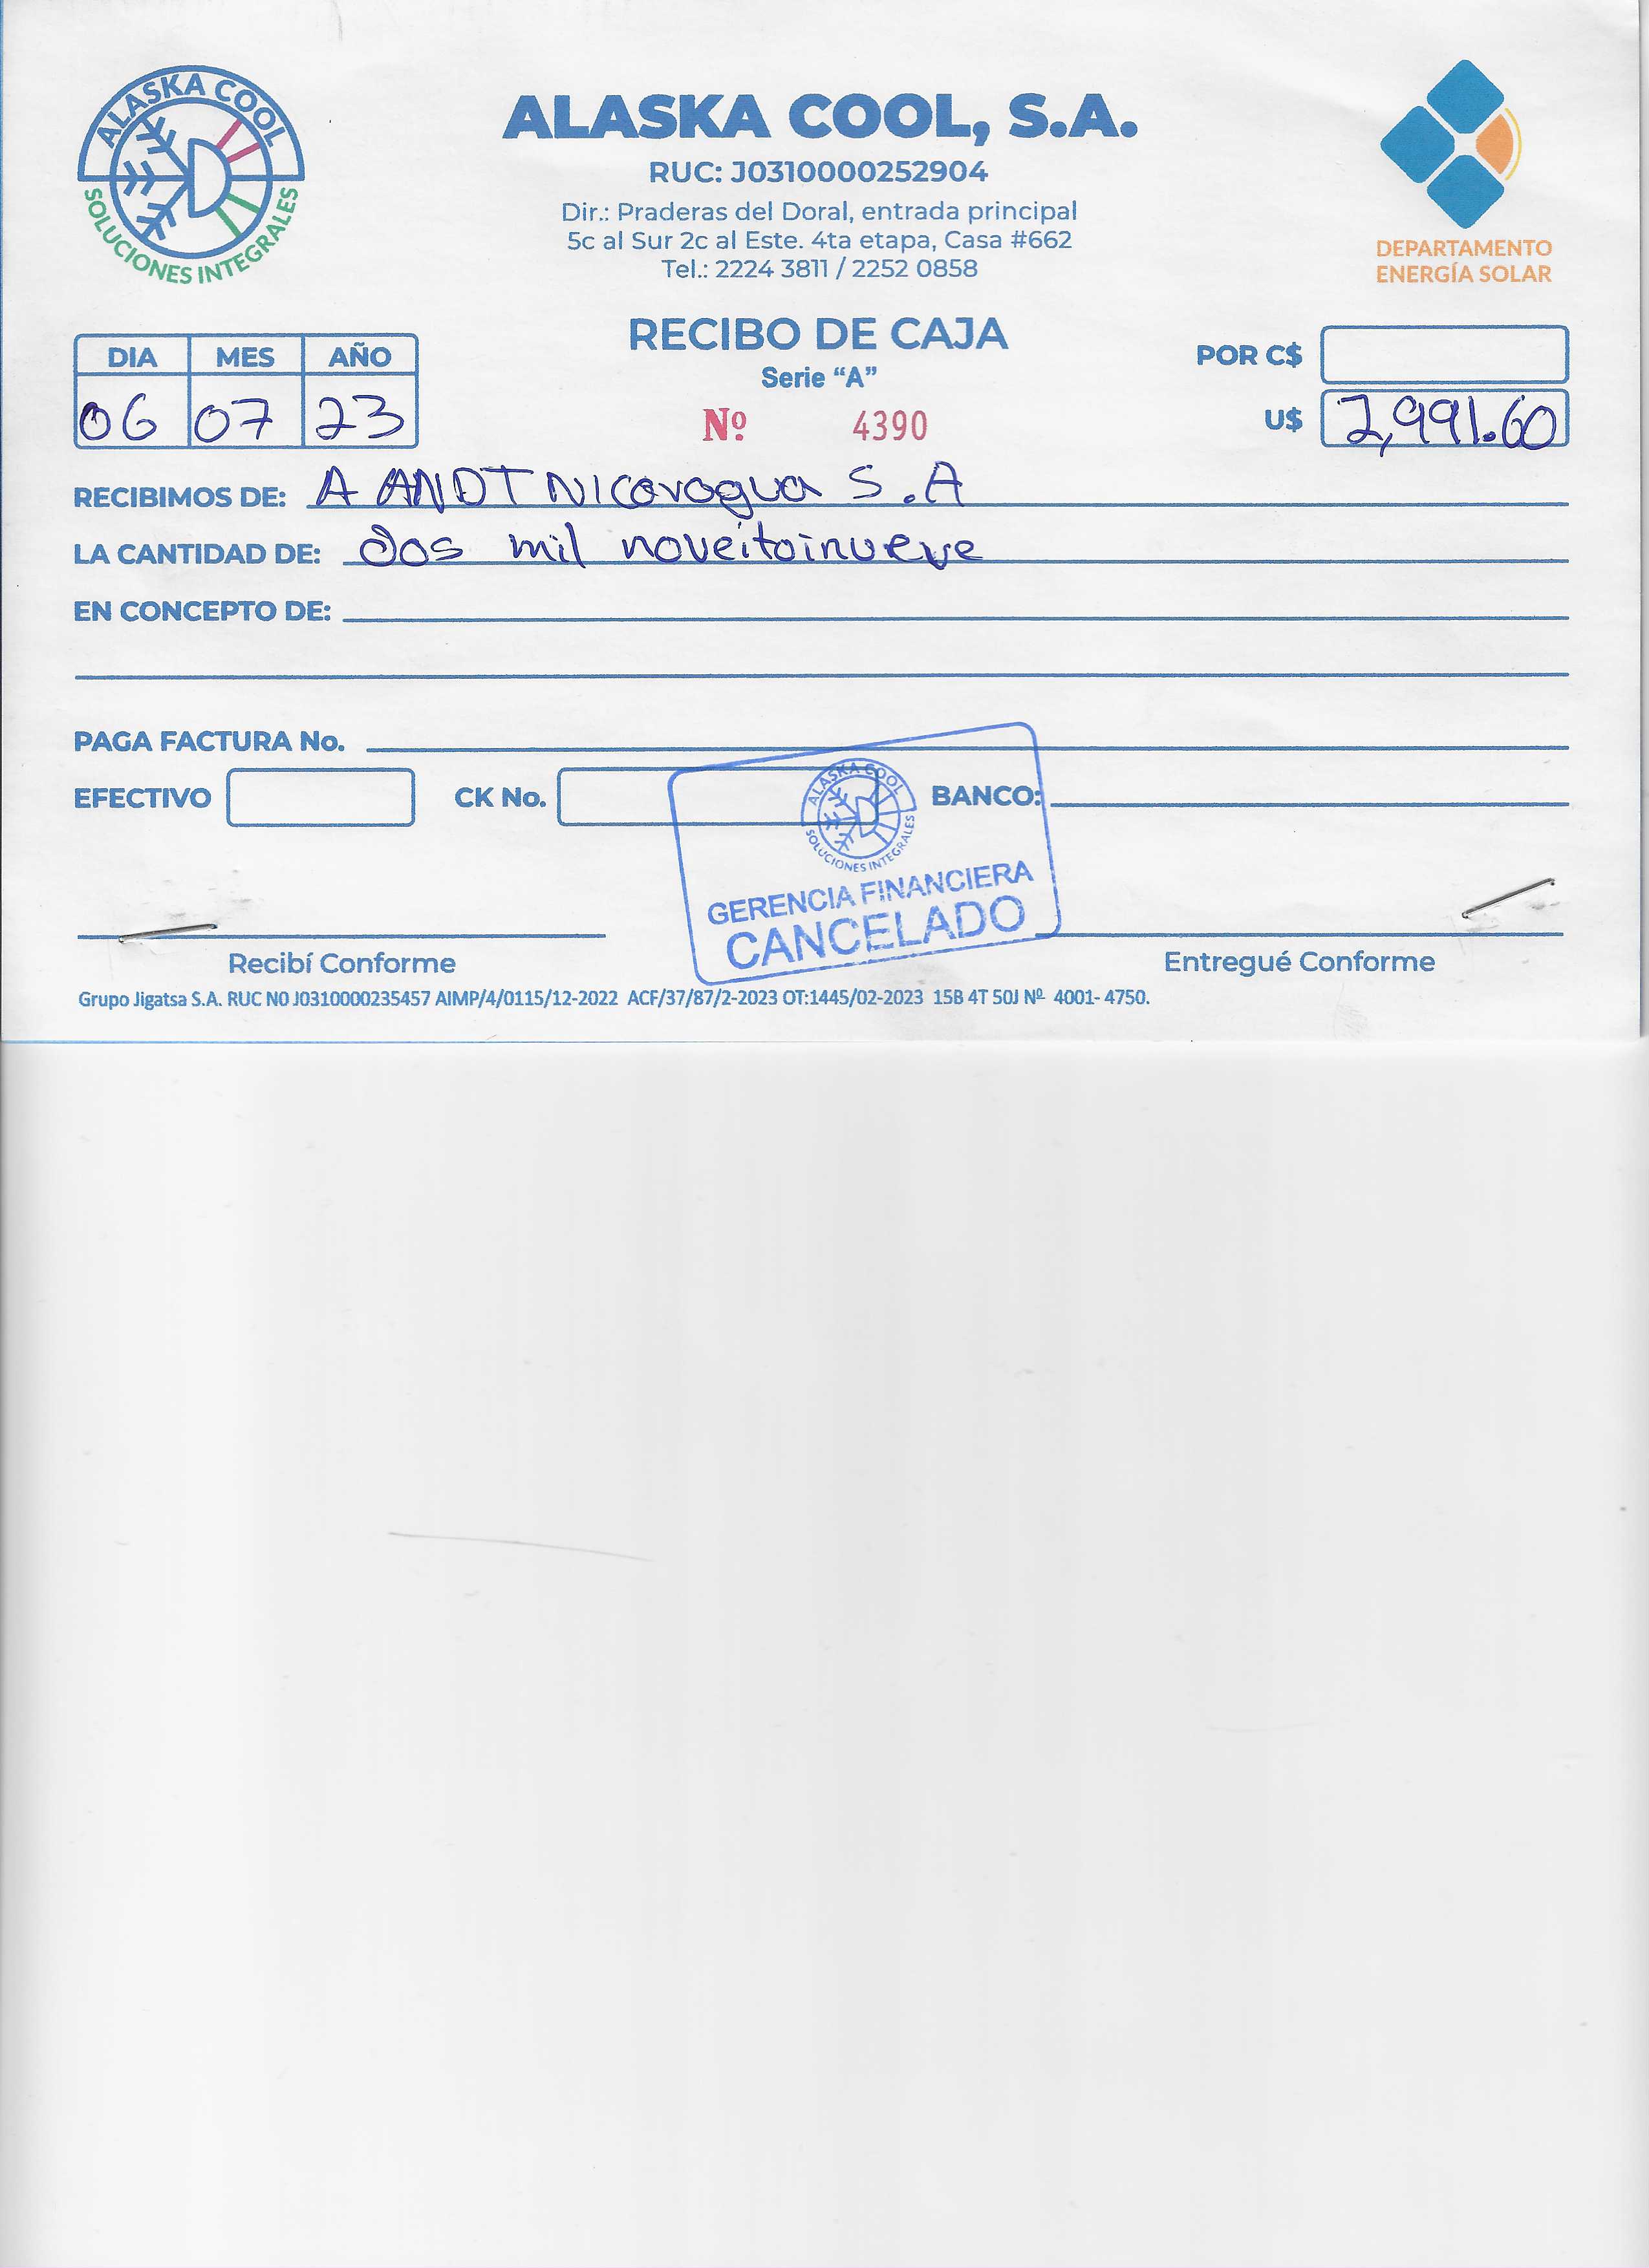 ALASKA COOL
SOLUCIONES INTEGRALES
ALASKA COOL, S.A.
RUC: J0310000252904
Dir.: Praderas del Doral, entrada principal
5c al Sur 2c al Este. 4ta etapa, Casa #662
Tel.: 2224 3811 / 2252 0858
DEPARTAMENTO
ENERGÍA SOLAR
RECIBO DE CAJA
Serie "A"
Nº 4390
DIA MES AÑO
06 07 23
POR C$
U$ 2,991.60
RECIBIMOS DE: A ANDT Nicaragua S.A
LA CANTIDAD DE: dos mil noveitoinueve
EN CONCEPTO DE:
PAGA FACTURA No.
EFECTIVO CK No. BANCO:
ALASKA COOL
SOLUCIONES INTEGRALES
GERENCIA FINANCIERA
CANCELADO
Recibí Conforme Entregué Conforme
Grupo Jigatsa S.A. RUC NO J0310000235457 AIMP/4/0115/12-2022 ACF/37/87/2-2023 OT:1445/02-2023 15B 4T 50J Nº 4001- 4750.